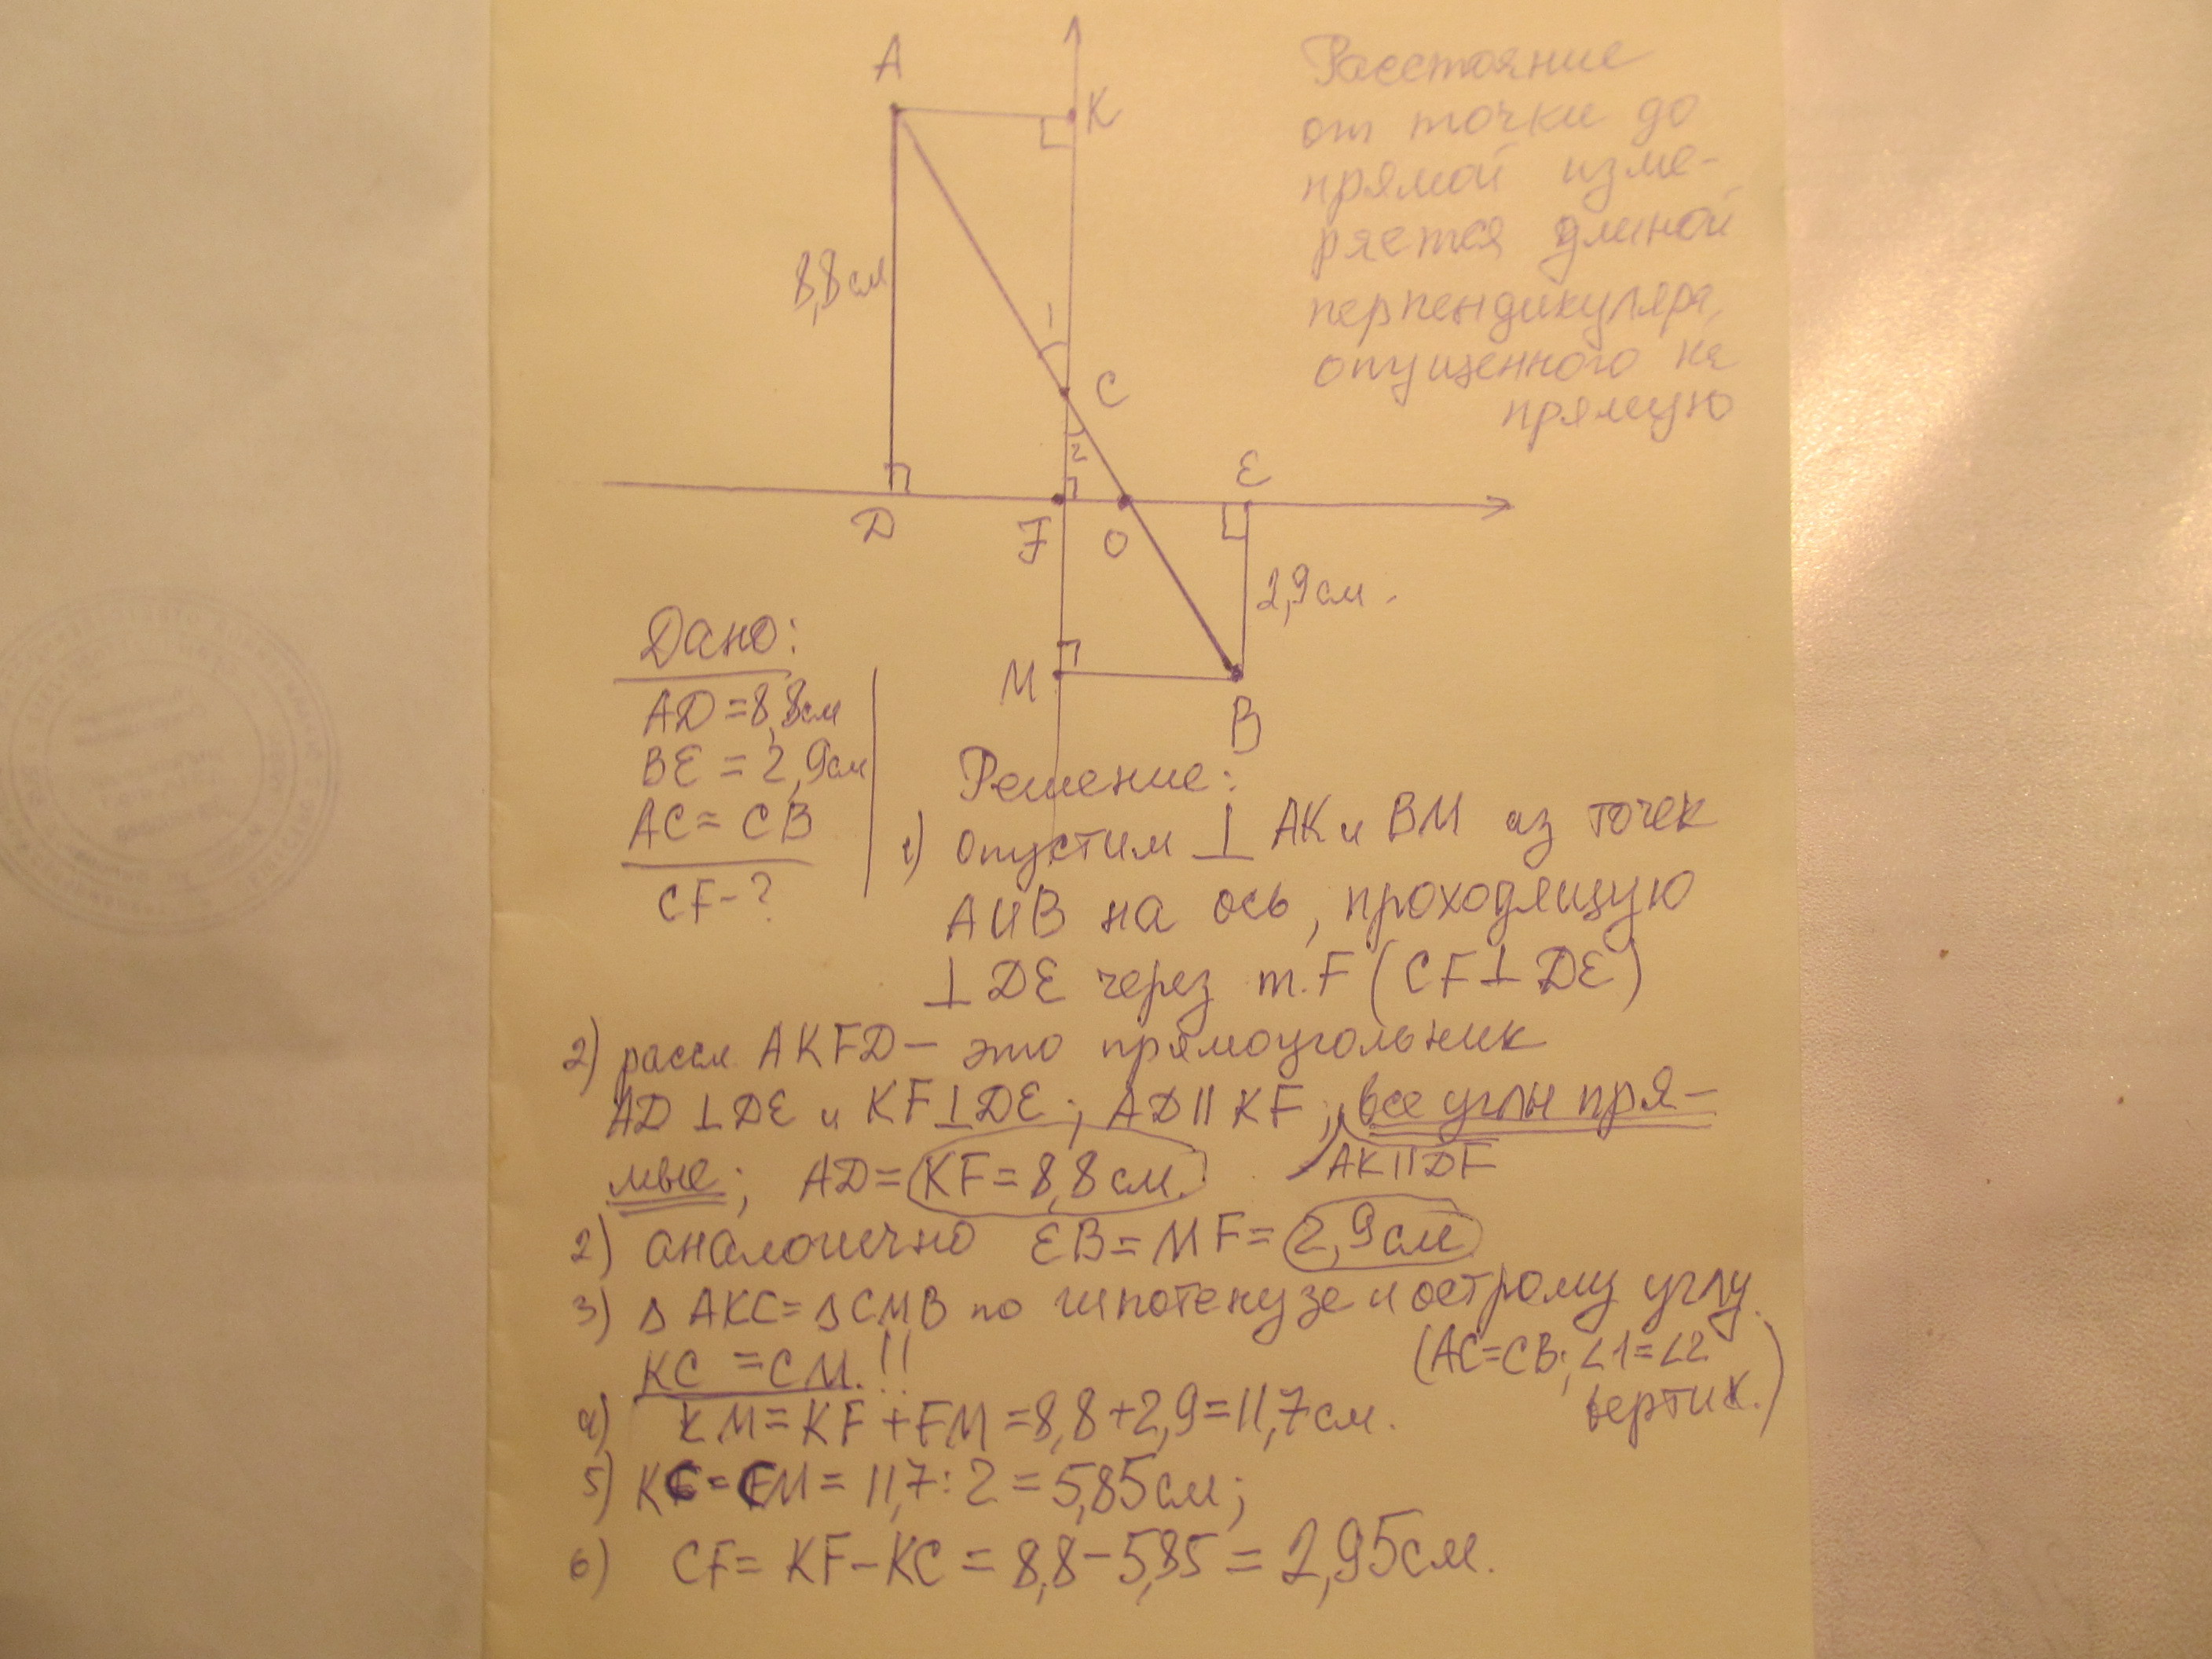 Расстояние
от точки до
прямой изме-
ряется длиной
перпендикуляра,
опущенного на
прямую
A
K
8,8см
1
C
2
E
D
F
O
2,9см.
M
B
Дано:
AD=8,8см
BE=2,9см
AC=CB
CF-?
Решение:
1) опустим ⊥ AK и BM из точек
A и B на ось, проходящую
⊥ DE через т. F (CF⊥DE)
2) рассм. AKFD – это прямоугольник
AD⊥DE и KF⊥DE; AD||KF; все углы пря-
AK||DF
мые; AD=KF=8,8см.
2) аналогично EB=MF=2,9см
3) Δ AKC=ΔCMB по гипотенузе и острому углу.
(AC=CB; ∠1=∠2
вертик.)
KC=CM.!!
4) KM=KF+FM=8,8+2,9=11,7см.
5) KC=CM=11,7:2=5,85см;
6) CF=KF-KC=8,8-5,85=2,95см.